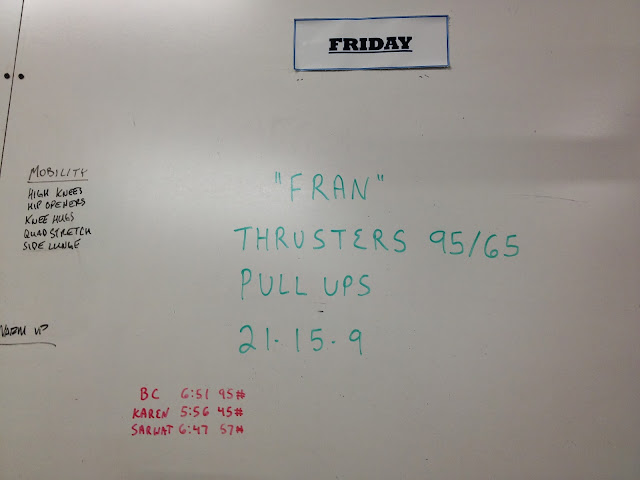 FRIDAY
MOBILITY
HIGH KNEES
HIP OPENERS
KNEE HUGS
QUAD STRETCH
SIDE LUNGE
WARM UP
"FRAN"
THRUSTERS 95/65
PULL UPS
21-15-9
BC 6:51 95#
KAREN 5:56 45#
SARWAT 6:47 57#